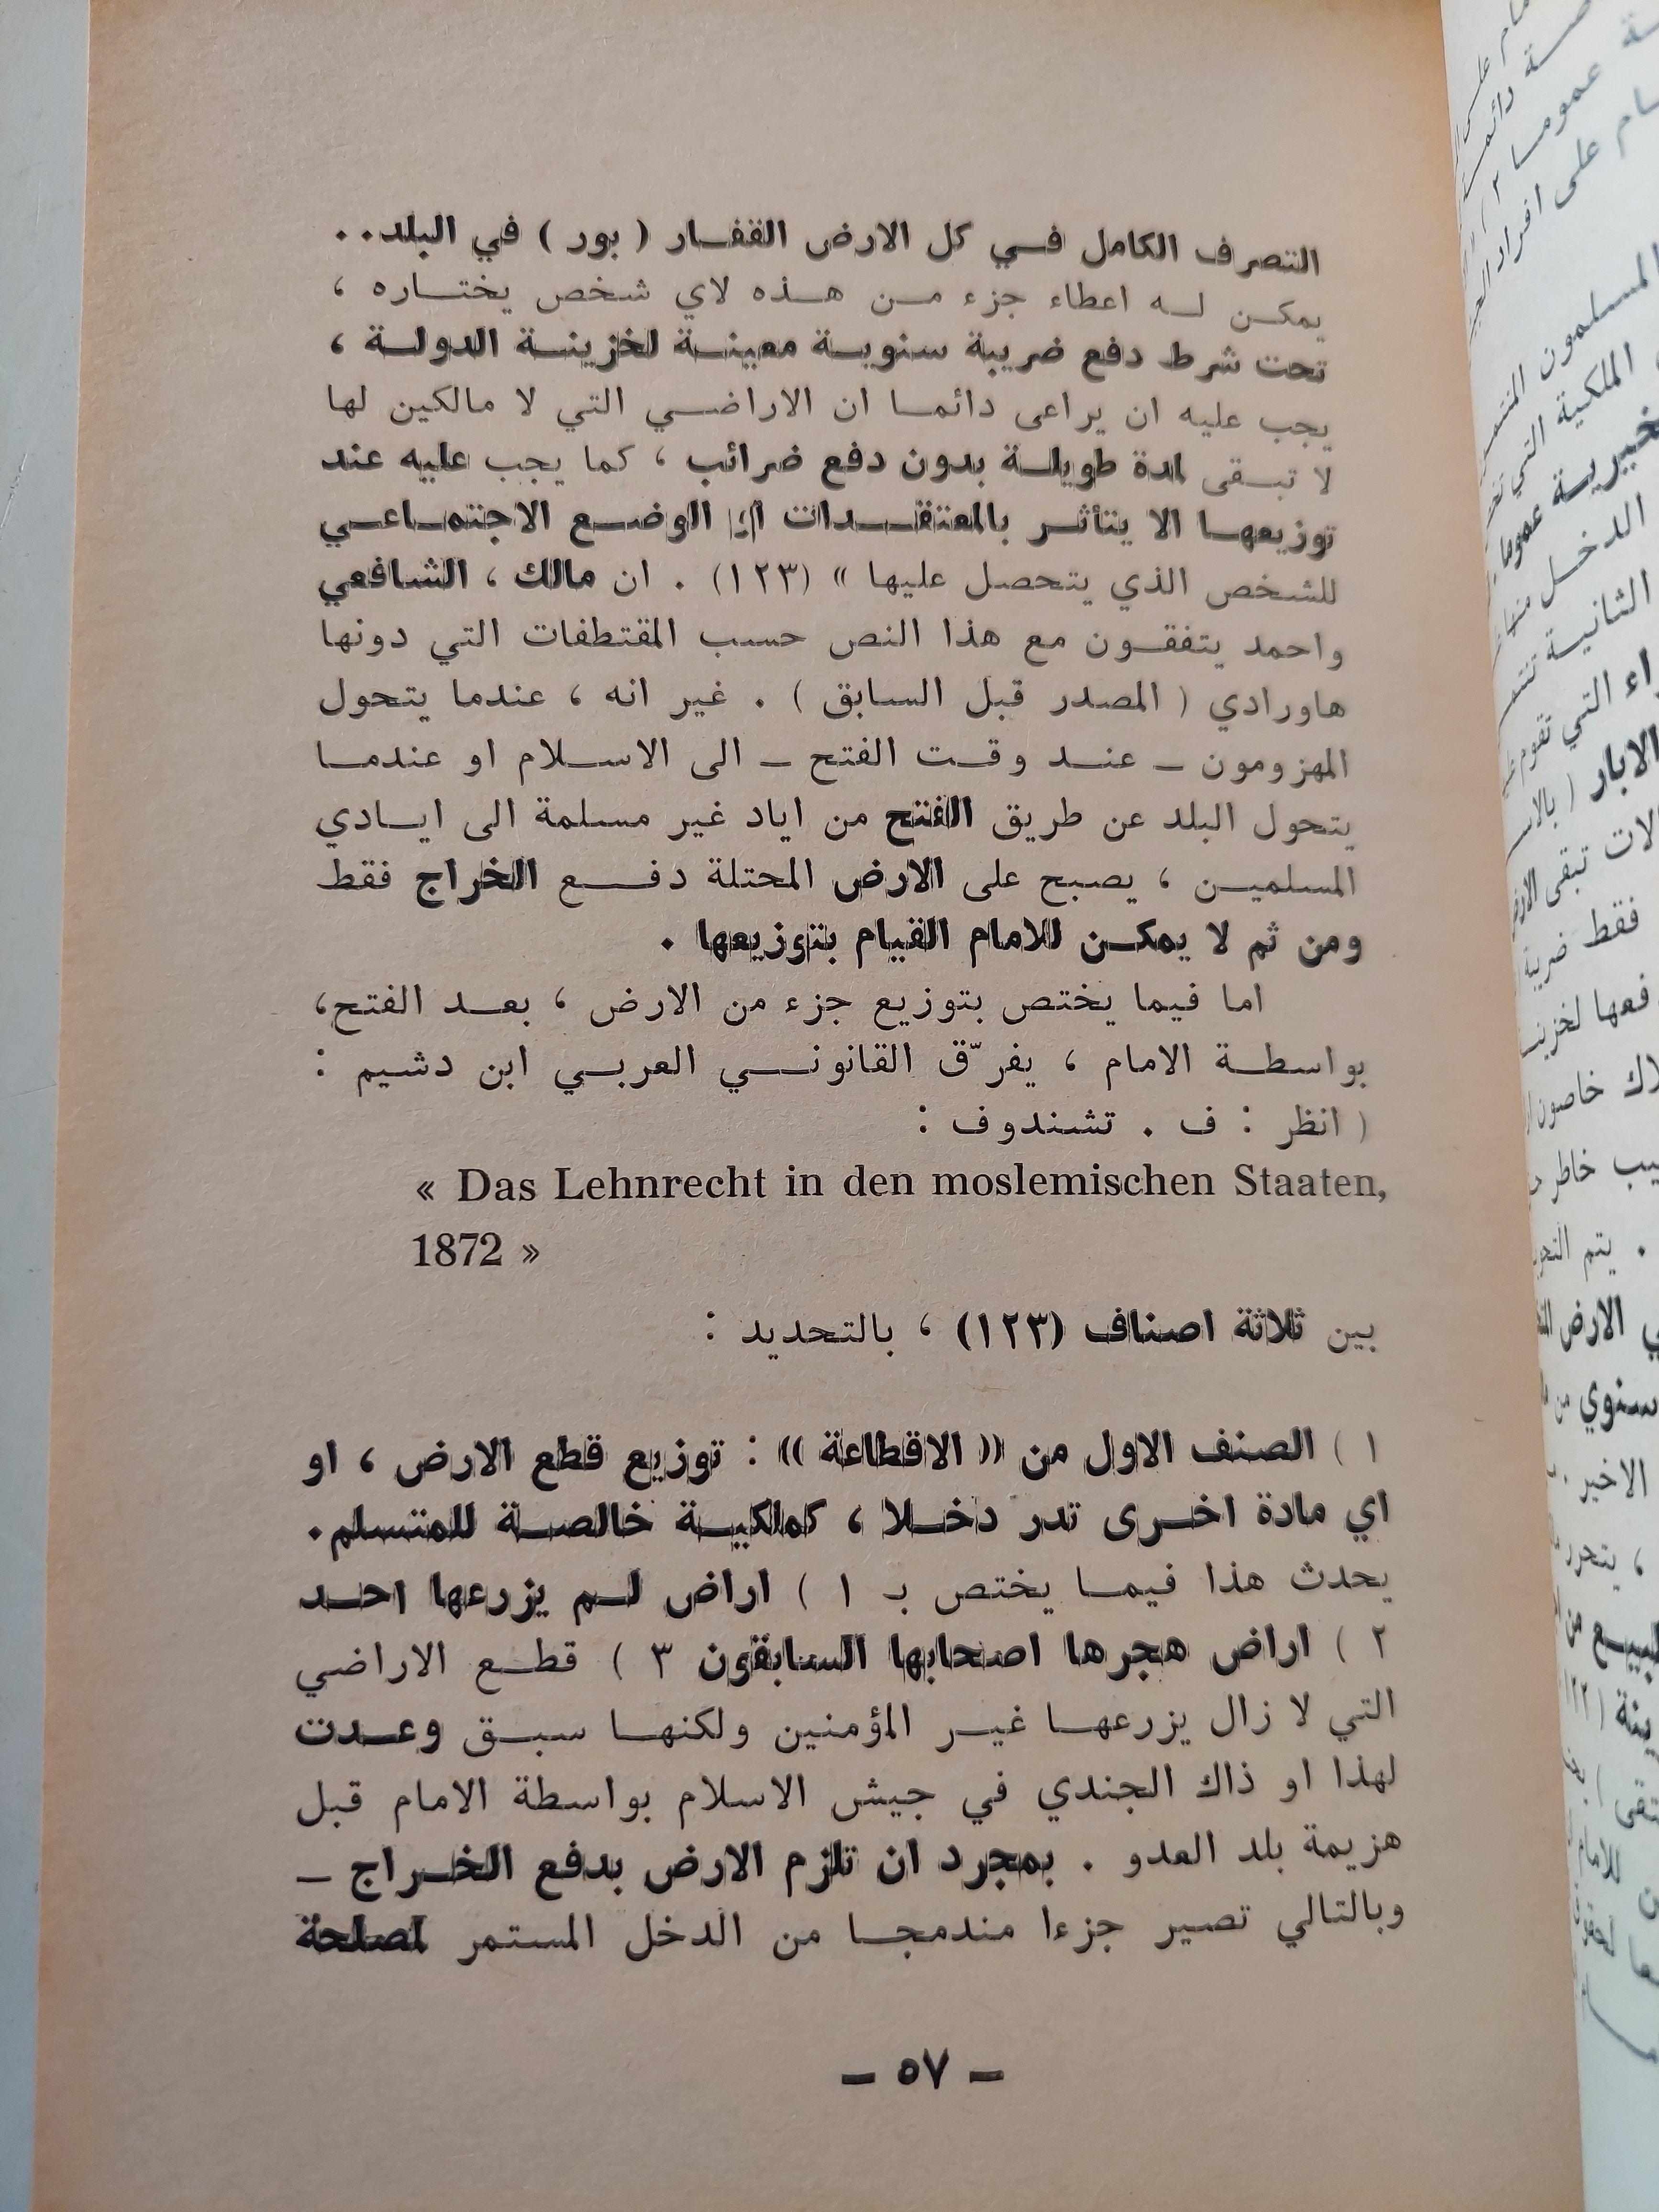 التصرف الكامل فـي كل الارض القفـار ( بور ) في البلد..
يمكـن لـه اعطاء جزء مـن هـذه لاي شخص يختـاره ،
تحت شرط دفع ضريبة سنويـة معينـة لخزينـة الدولـة ،
يجب عليه ان يراعى دائمـا ان الاراضـي التي لا مالكين لها
لا تبـقى لمدة طويلـة بدون دفع ضرائب ، كما يجب عليه عند
توزيعهـا الا يتأثـر بالمعتقـدات او الوضـع الاجتمـاعـي
للشخص الذي يتحصل عليها » (١٢٣) . ان مالك ، الشافعي
واحمد يتفقـون مع هذا النص حسب المقتطفات التي دونها
هاورادي ( المصدر قبل السابق ) . غير انه ، عندما يتحول
المهزومون ـ عنـد وقـت الفتح ـ الى الاسـلام او عندمـا
يتحول البلد عن طريق الفتح من اياد غير مسلمة الى ايـادي
المسلميـن ، يصبح على الارض المحتلة دفـع الخراج فقط
ومن ثم لا يمكـن للامام القيام بتوزيعها .
اما فيما يختص بتوزيع جزء من الارض ، بعـد الفتح،
بواسطـة الامام ، يفرّق القانونـي العربـي ابن دشيم :
( انظر : ف . تشندوف :
« Das Lehnrecht in den moslemischen Staaten,
1872 »
بين ثلاثة اصناف (١٢٣) ، بالتحديد :
١ ) الصنف الاول من (( الاقطاعة )) : توزيع قطع الارض ، او
اي مادة اخـرى تدر دخـلا ، كملكيـة خالصـة للمتسلم.
يحدث هذا فيمـا يختص بـ ١ ) اراض لـم يزرعها احـد
٢ ) اراض هجرها اصحابها السابقون ٣ ) قطـع الاراضي
التي لا زال يزرعهـا غيـر المؤمنين ولكنهـا سبـق وعـدت
لهذا او ذاك الجندي في جيش الاسلام بواسطة الامام قبل
هزيمة بلد العدو . بمجرد ان تلزم الارض بدفع الخـراج ـ
وبالتالي تصير جزءا مندمجـا من الدخل المستمر لمصلحة
ـ ٥٧ ـ